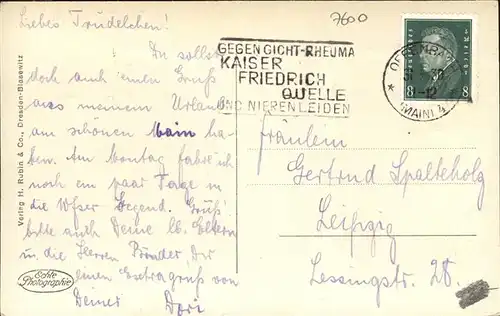 7600
Liebes Trudelchen!
Du sollst
doch auch einen Gruß
aus meinem Urlaub
am schönen Main ha-
ben. Am Montag fahre ich
noch ein paar Tage in
die Gegend. Grüß
bitte auch Deine lb. Eltern
u. die Herren Brüder. Dir
einen Extragruß von
Deiner Dori
GEGEN GICHT-RHEUMA
KAISER
FRIEDRICH
QUELLE
UND NIERENLEIDEN
8 8
-12
(MAIN) 4
Fräulein
Gertrud Spalteholz
Leipzig
Lessingstr. 28.
Verlag H. Rubin & Co., Dresden-Blasewitz
Echte
Photographie